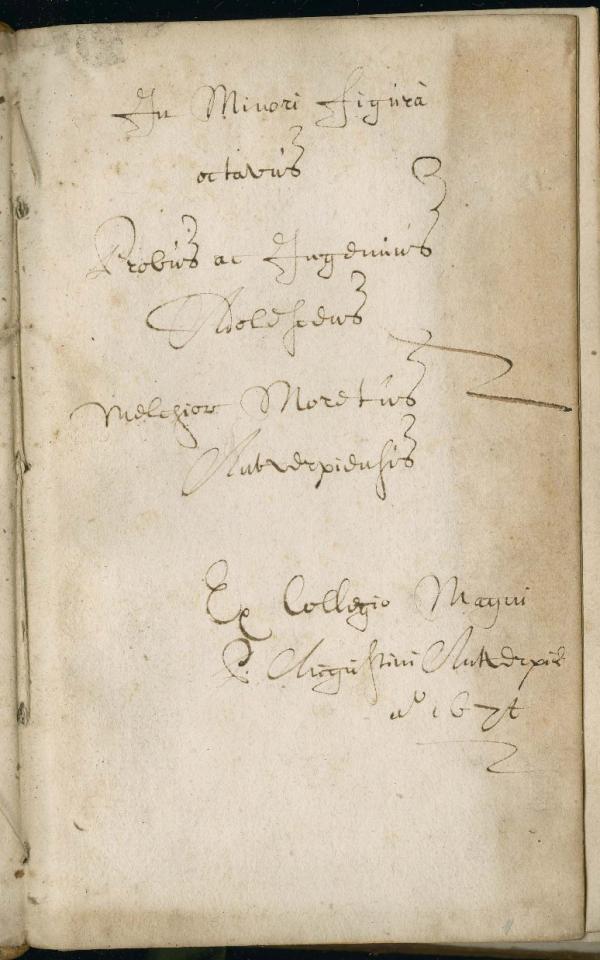 In Minori figurâ
octavus
Probus ac Ingenuus
Adolescens
Melchior Moretus
Antverpiensis
Ex Collegio Magni
P. Augustini Antverpiæ
aº 1674